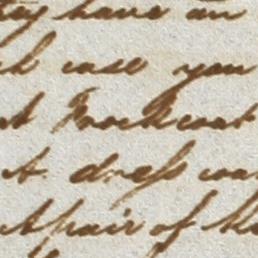 they have an
case you
Frock coat
A dress coa
A pair of